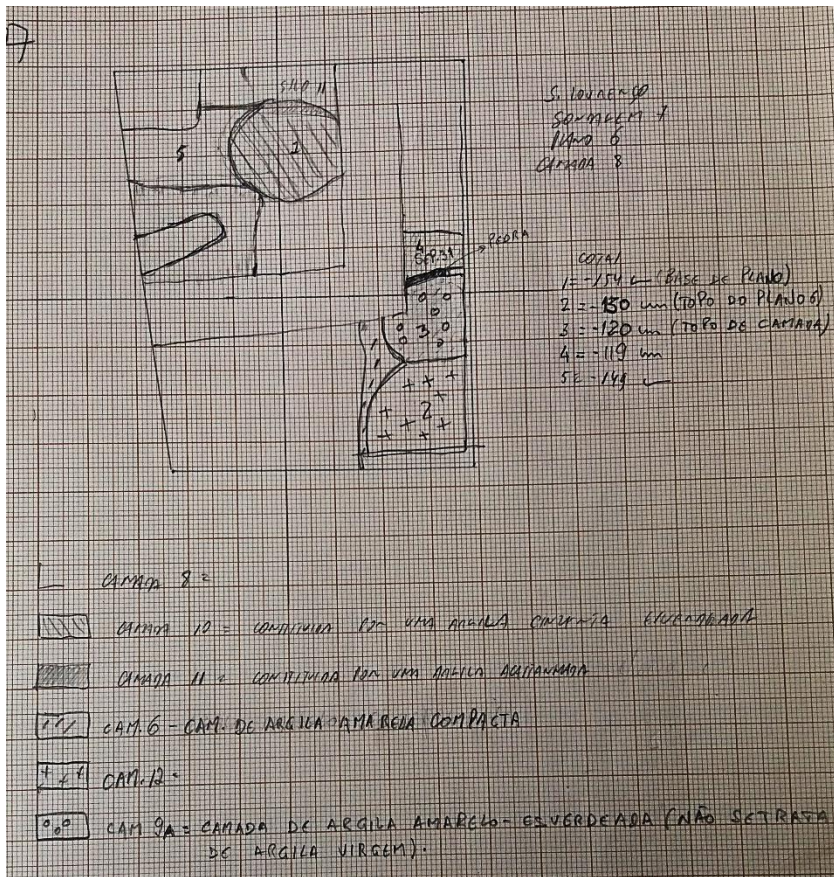 7
SILO 11
5
1
S. LOURENÇO
SONDAGEM 7
PLANO 6
CAMADA 8
4
SEP. 31
PEDRA
3
2
COTAS
1 = -154 (BASE DE PLANO)
2 = -130 cm (TOPO DO PLANO 6)
3 = -120 cm (TOPO DE CAMADA)
4 = -119 cm
5 = -149
CAMADA 8 =
CAMADA 10 = CONSTITUIDA POR UMA ARGILA CINZENTA ESVERDEADA
CAMADA 11 = CONSTITUIDA POR UMA ARGILA ACASTANHADA
CAM. 6 - CAM. DE ARGILA AMARELA COMPACTA
CAM. 12 =
CAM 9A = CAMADA DE ARGILA AMARELO-ESVERDEADA (NÃO SE TRATA
DE ARGILA VIRGEM).